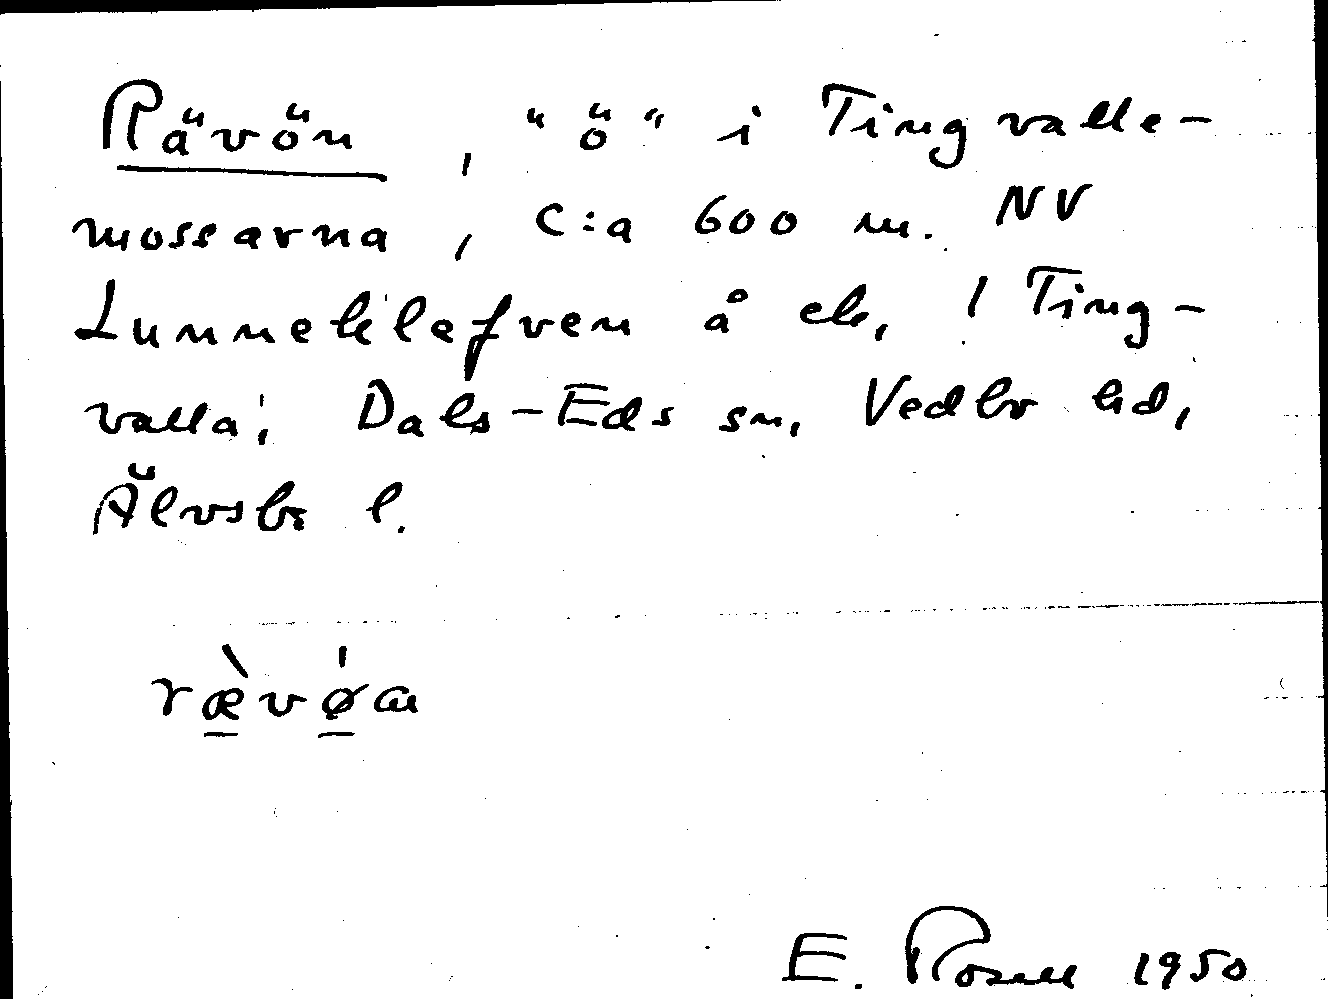 Rävön, "ö" i Tingvalle-
mossarna, c:a 600 m. NV
Lunneklefven å ek, 1 Ting-
valla; Dals-Eds sn, Vedbo hd,
Älvsb l.
ræ̀vǿa
E. Rosell 1950